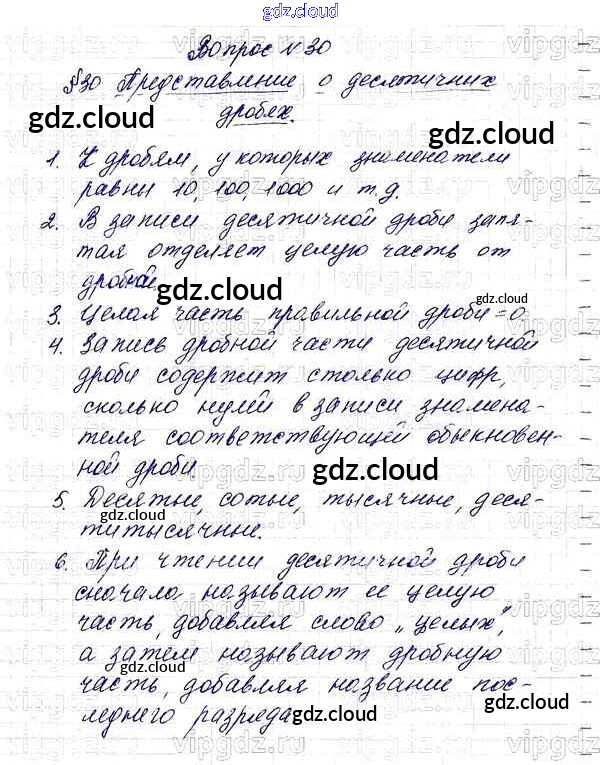 gdz.cloud
Вопрос №30
§30 Представление о десятичных
дробях.
gdz.cloud
gdz.cloud
1. К дробям, у которых знаменатели
равны 10, 100, 1000 и т.д.
2. В записи десятичной дроби запя-
тая отделяет целую часть от
дробной.
gdz.cloud
gdz.cloud
3. Целая часть правильной дроби = 0.
4. Запись дробной части десятичной
дроби содержит столько цифр,
сколько нулей в записи знамена-
теля соответствующей обыкновен-
ной дроби.
gdz.cloud
5. Десятые, сотые, тысячные, деся-
титысячные.
gdz.cloud
6. При чтении десятичной дроби
сначала называют ее целую
часть, добавляя слово „целых",
а затем называют дробную
часть, добавляя название пос-
леднего разряда
gdz.cloud
gdz.cloud